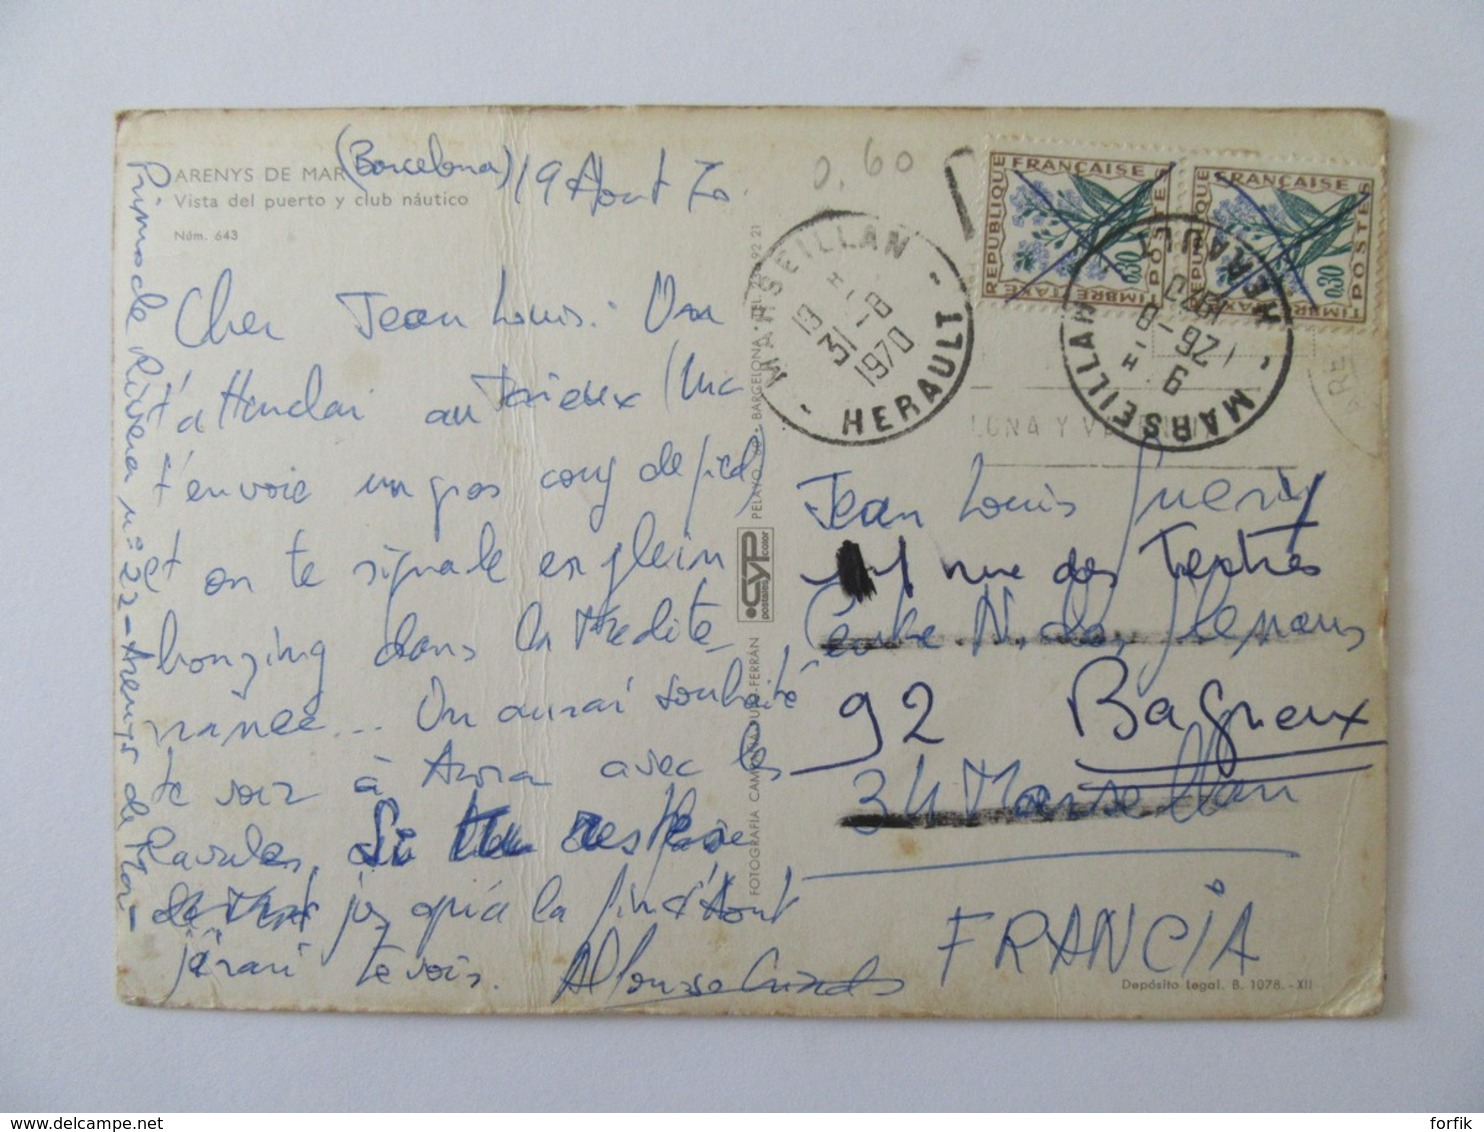 ARENYS DE MAR (Barcelona) 19 Aout 70
Vista del puerto y club náutico
Núm. 643
Cher Jean Louis. On
t'attendai au (on
t'envoie un gros coup de pied)
et on te signale en plein
bonzing dans la Médite
rranée... On aurai souhaité
te voir à avec les
Si tu restes
jusqu'à la fin d'Aout
j'irai te vois. Alfonso
Primo de Rivera nº 22 - Arenys de Mar -
FOTOGRAFÍA CAMPAÑÁ-PUIG-FERRÁN
CYP
postales color
PELAYO, 60 • BARCELONA • TEL. 92 21
0.60
REPUBLIQUE FRANÇAISE
POSTES
0,30
TIMBRE TAXE
REPUBLIQUE FRANÇAISE
POSTES
0,30
TIMBRE TAXE
MARSEILLAN
19 H
31-8
1970
HERAULT
MARSEILLAN
9 H
26-8
1970
HERAULT
Jean Louis Guery
rue des Tertres
Centre N. des Glenans
92 Bagneux
34 Marseillan
FRANCIA
Depósito Legal. B. 1078.-XII
forfik